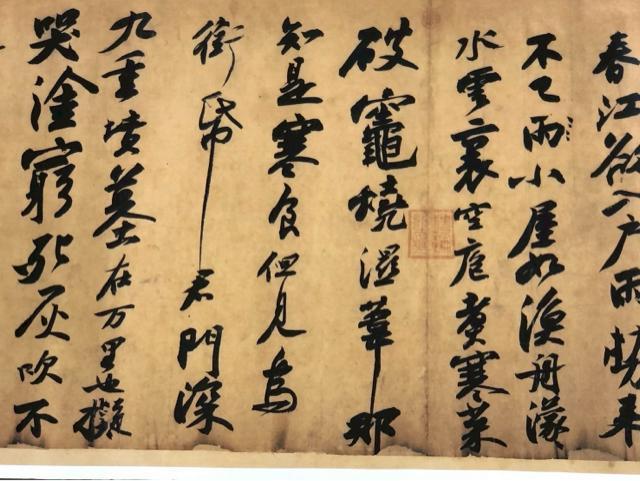 春江欲入戶雨勢來
不已雨小屋如漁舟濛
水雲裏空庖煑寒菜
破竈燒濕葦那
知是寒食但見烏
銜帋君門深
九重墳墓在万里也擬
哭塗窮死灰吹不